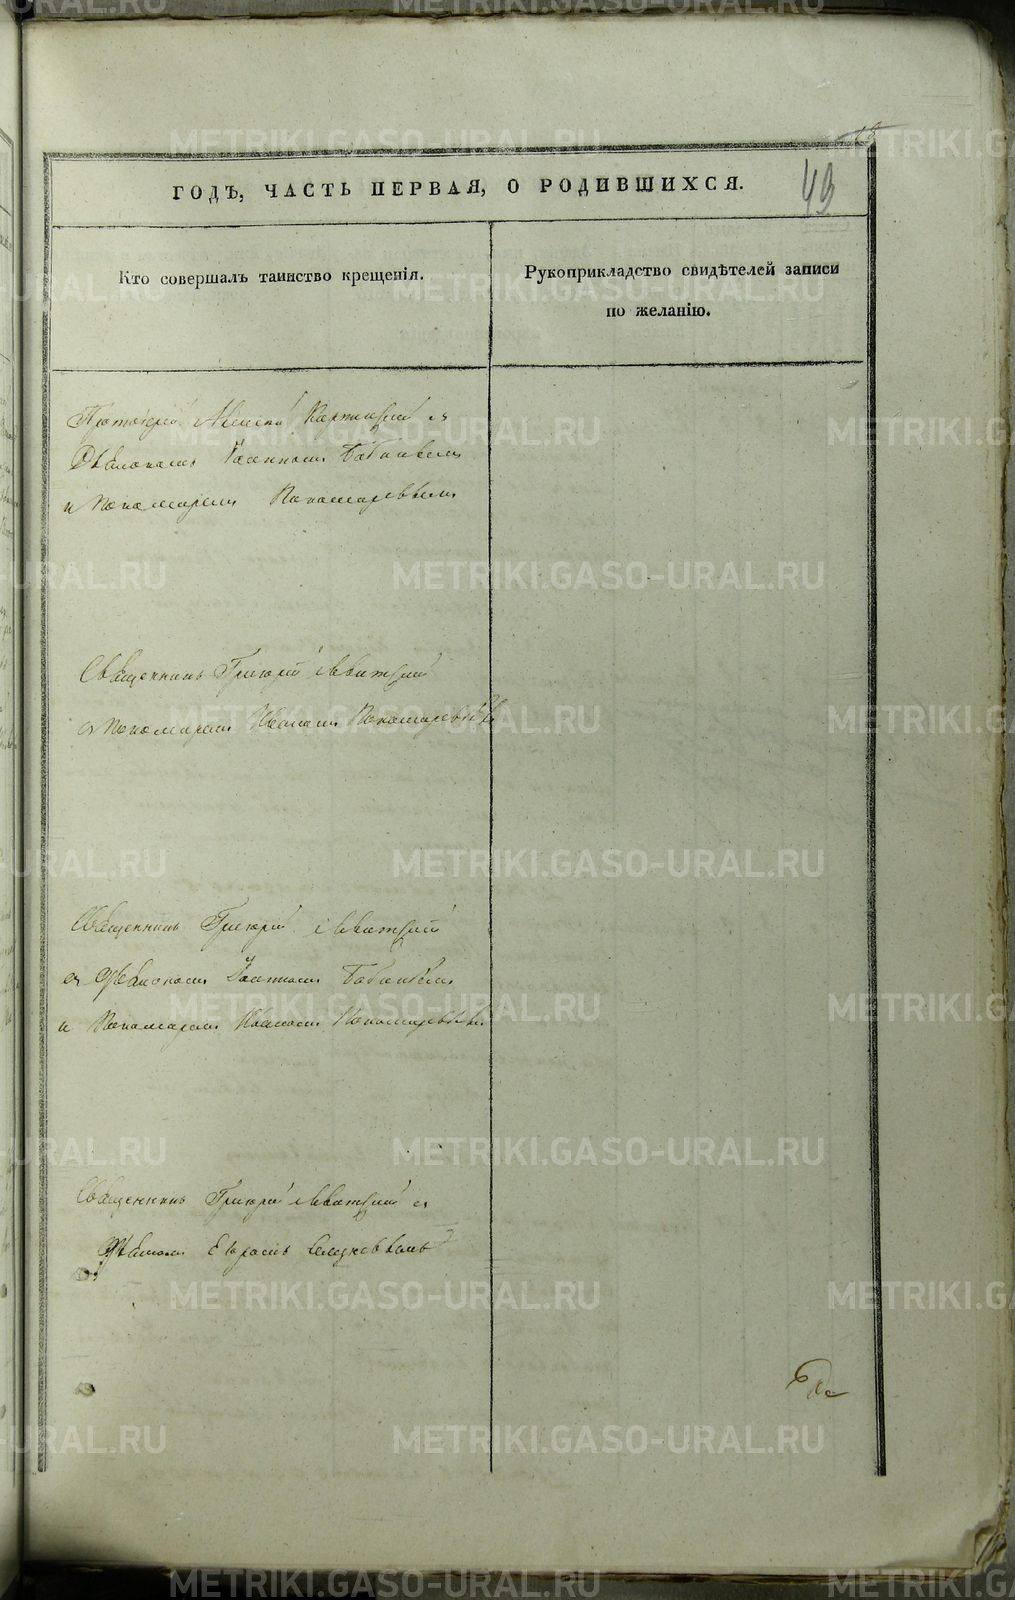 43
ГОДЪ, ЧАСТЬ ПЕРВАЯ, О РОДИВШИХСЯ.
Кто совершалъ таинство крещенія.
Рукоприкладство свидѣтелей записи
по желанію.
Протоіерей Алексей съ
Діакономъ Іоанномъ Бабиковым
и пономаремъ Пономаревымъ
Священникъ Григорій Левитскій
съ пономаремъ Иваномъ Пономаревымъ
Священникъ Григорій Левитскій
съ Діакономъ Іоанномъ Бабиковым
и Пономаремъ Иваномъ Пономаревымъ
Священникъ Григорій Левитскій съ
METRIKI.GASO-URAL.RU